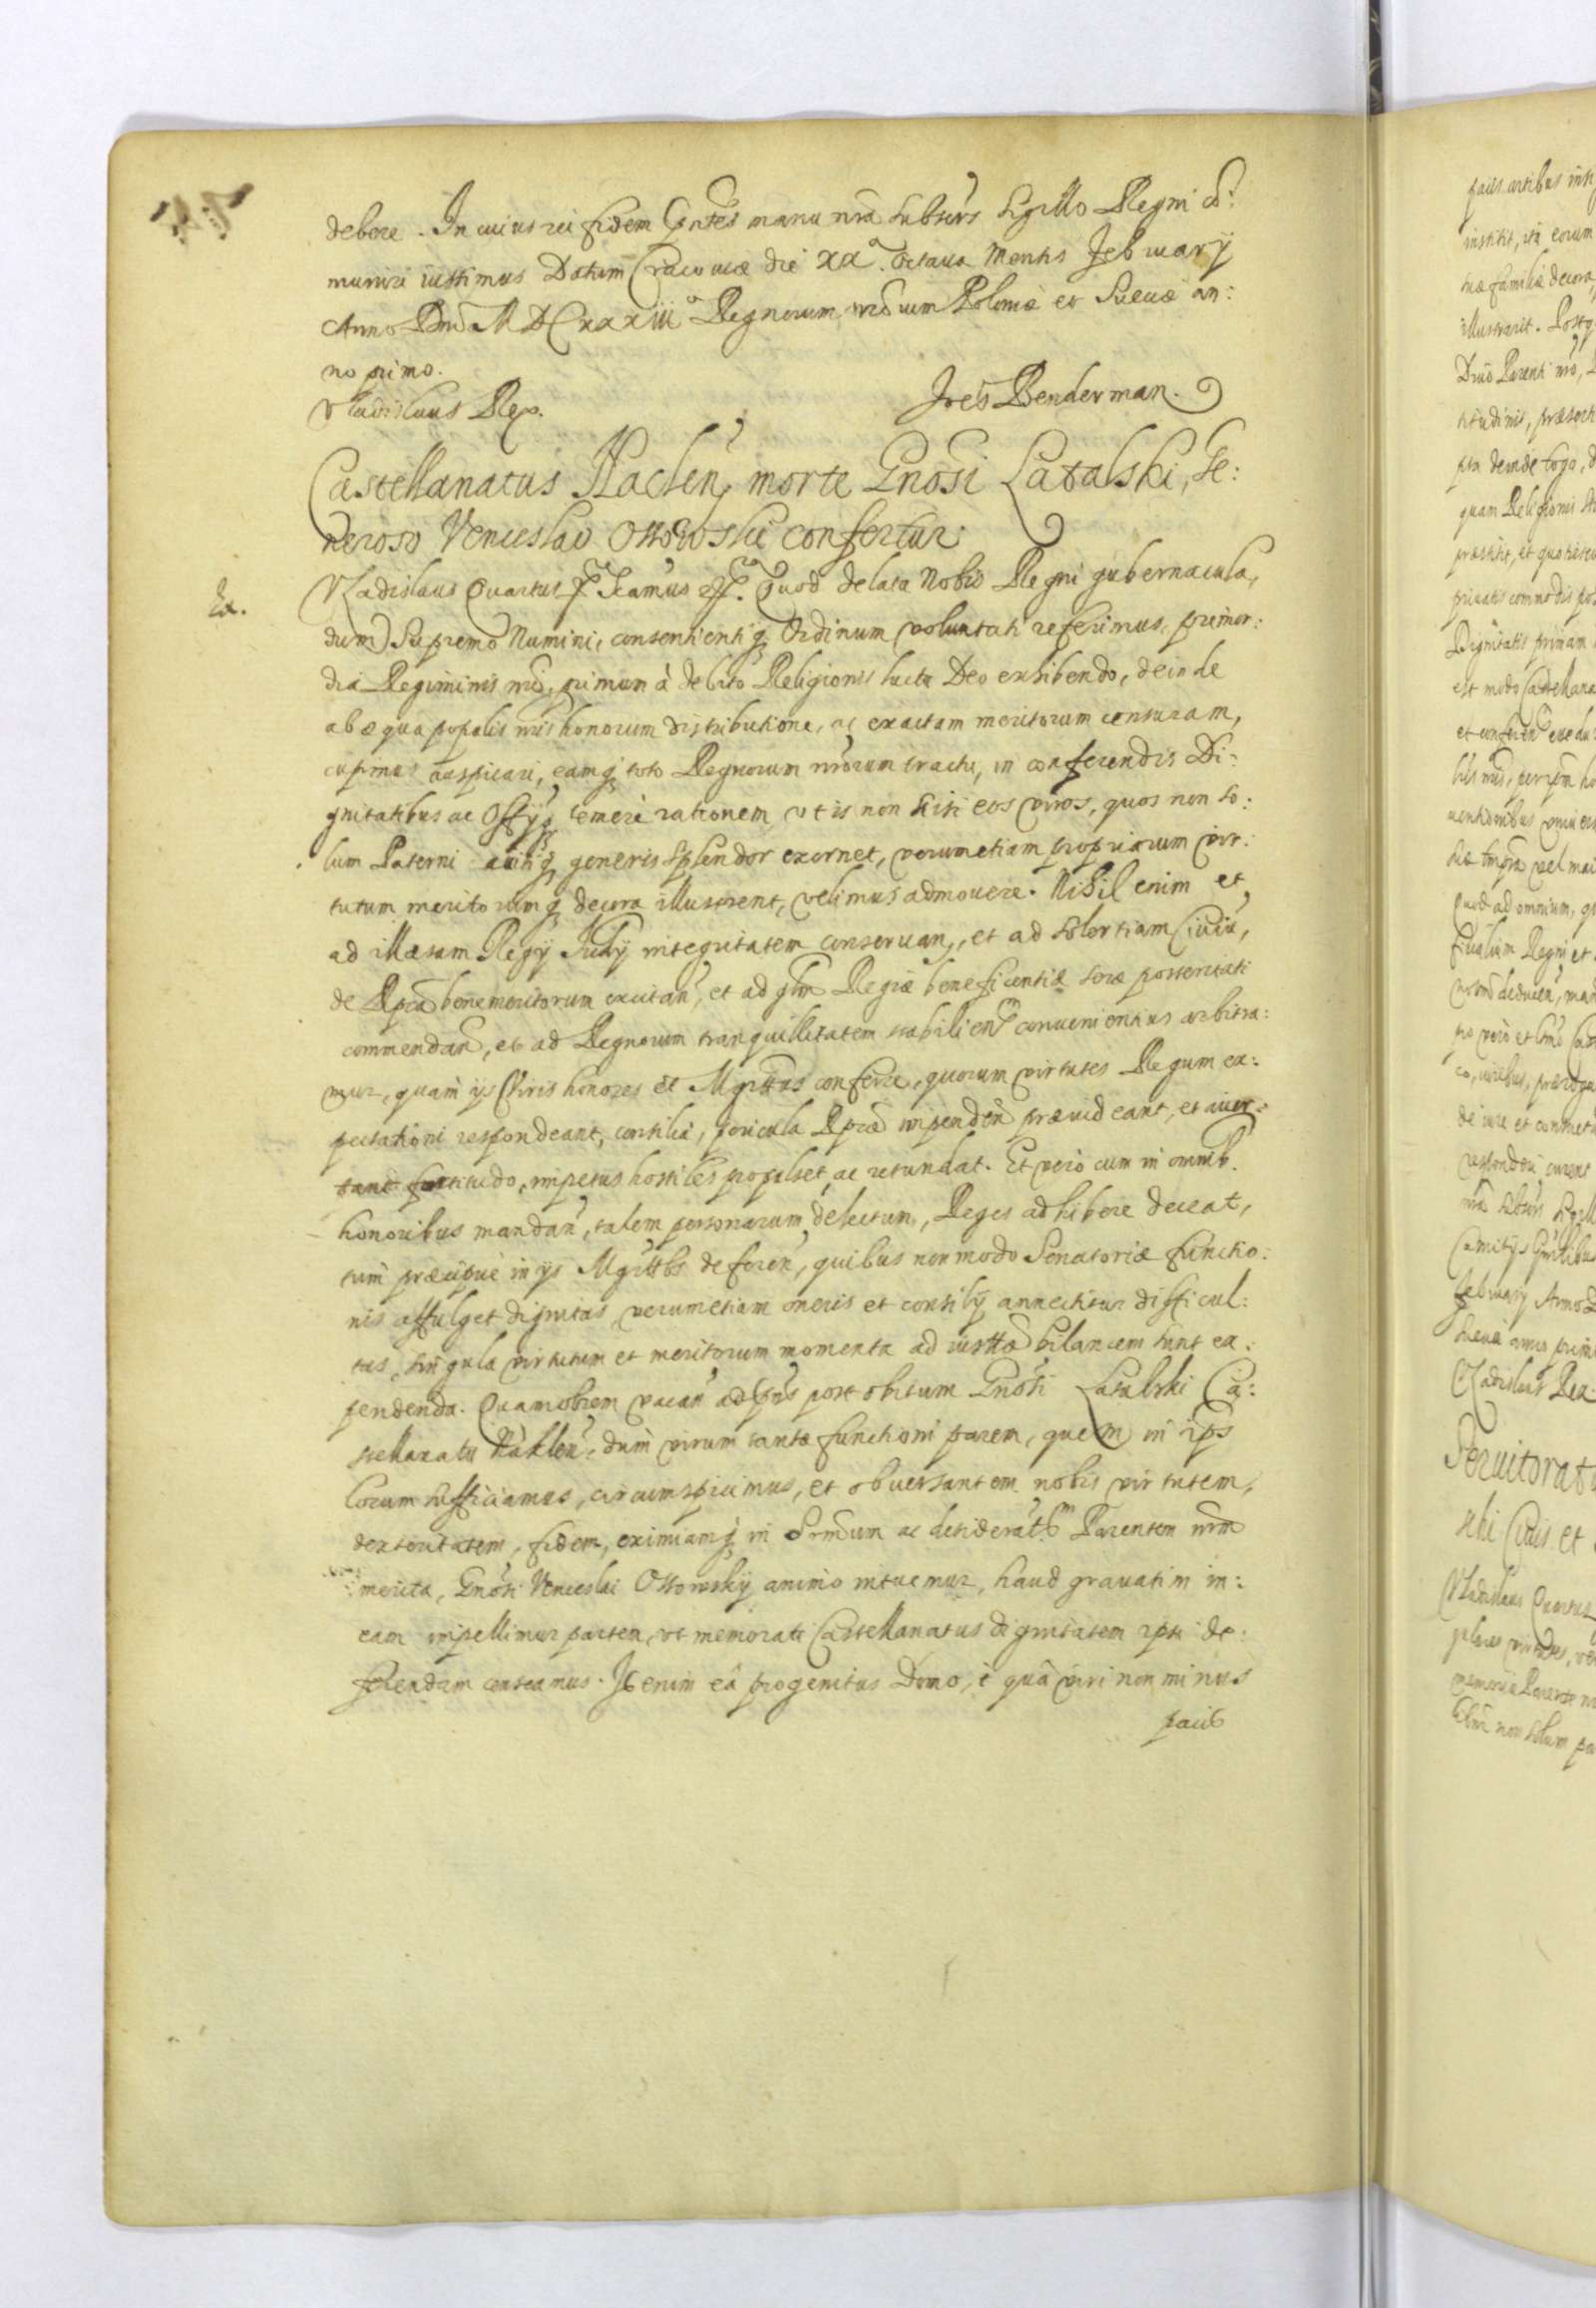 debere. In cuius rei fidem pntes manu nrã subscrs Sigillo Regni cõ:
muniri iussimus Datum Cracouiæ die XXa. octaua Mensis Februarÿ
Anno Dnĩ M DC xxxiiio Regnorum nrõrum Poloniæ et Sueciæ an:
no primo.
Vladislaus Rex.
Joes Benderman.
Castellanatus Naclen, morte Gnosi Latalski, Ge:
neroso Venceslao Ossowski confertur.
Ex.
Vladislaus Quartus etc. Scamus etc. Quod delata Nobis Regni gubernacula,
dum Supremo Numini, consentientiq Ordinum voluntati referimus, primor:
dia Regiminis nrĩ, primum à debito Religionis luctu Deo exhibendo, deinde
ab æqua populis nris honorum distributione, ac exactam meritorum censuram,
cupimus auspicari, eamq toto Regnorum nrõrum tractu, in conferendis Di:
gnitatibus ac Offÿsq temerè rationem, vt is non nisi eos viros, quos non so:
lum Paterni auitiq generis splendor exornet, verumetiam propriorum vir:
tutum meritorumq decora illustrent, velimus admouere. Nihil enim et
ad illæsam Regÿ Iudÿ integritatem conseruan, et ad solertiam Ciuiũ,
de Rpca benemeritorum excitan, et ad glm Regiæ beneficentiæ seræ posteritati
commendan, et ad Regnorum tranquillitatem stabilien conuenientius arbitra:
mur, quam ijs Viris honores et Mgrttus conferre, quorum virtutes Regum ex:
pectationi respondeant, consilia, pericula Rpcæ impenden præuideant, et auer:
tant fortitudo, impetus hostiles propulset ac retundat. Et verò cum in omnib.
honoribus mandan, talem personarum delectum, Reges adhibere deceat,
tum præcipuè in ijs Mgrttbs deferen, quibus non modo Senatoriæ functio:
nis affulget dignitas, verumetiam oneris et consilÿ annectitur difficul:
tas, singula virtutum et meritorum momenta ad iustã bilancem sunt ex:
pendenda. Quamobrem vacan ad pns post obitum Gnosi Latalski Ca:
stellanatu Naklen, dum virum tantæ functioni parem, quem in ips
locum sufficiamus, circumspicimus, et obuersantem nobis virtutem,
dexteritatem, fidem, eximiamq in Srmum ac desideratm Parentem nrm
merita, Gnosi Venceslai Ossowskÿ animo intuemur, haud grauatim in:
eam impellimur partem, vt memorati Castellanatus dignitatem ipsi de:
ferendam censeamus. Is enim eâ progenitus Domo, è quâ viri non minus
pacis